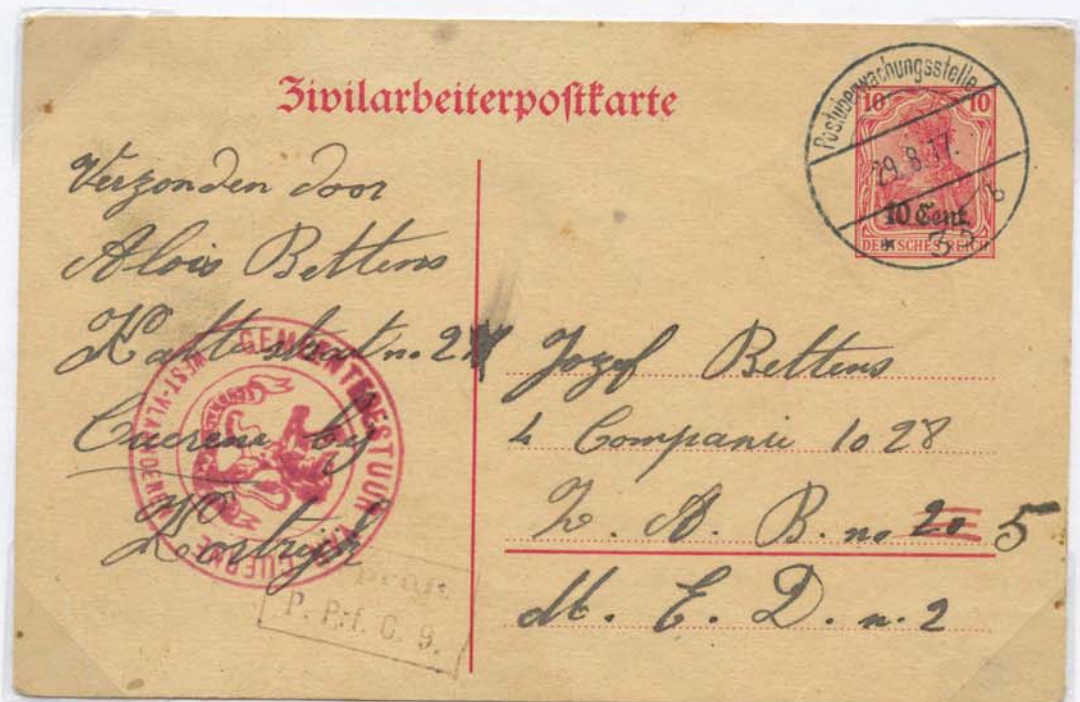 Zivilarbeiterpostkarte
Postüberwachungsstelle
29.8.17.
b
* 33
10 10
10 Cent.
DEUTSCHES REICH
Verzonden door
Alois Bettens
Kattestraat no. 27
Cuerne bij
Kortrijk
GEMEENTEBESTUUR VAN CUERNE
WEST-VLAANDEREN
Geprüft
P. P.:f. C. 9.
Jozef Bettens
4 Companie 1028
Z. A. B. no 20 5
M. E. D. n. 2